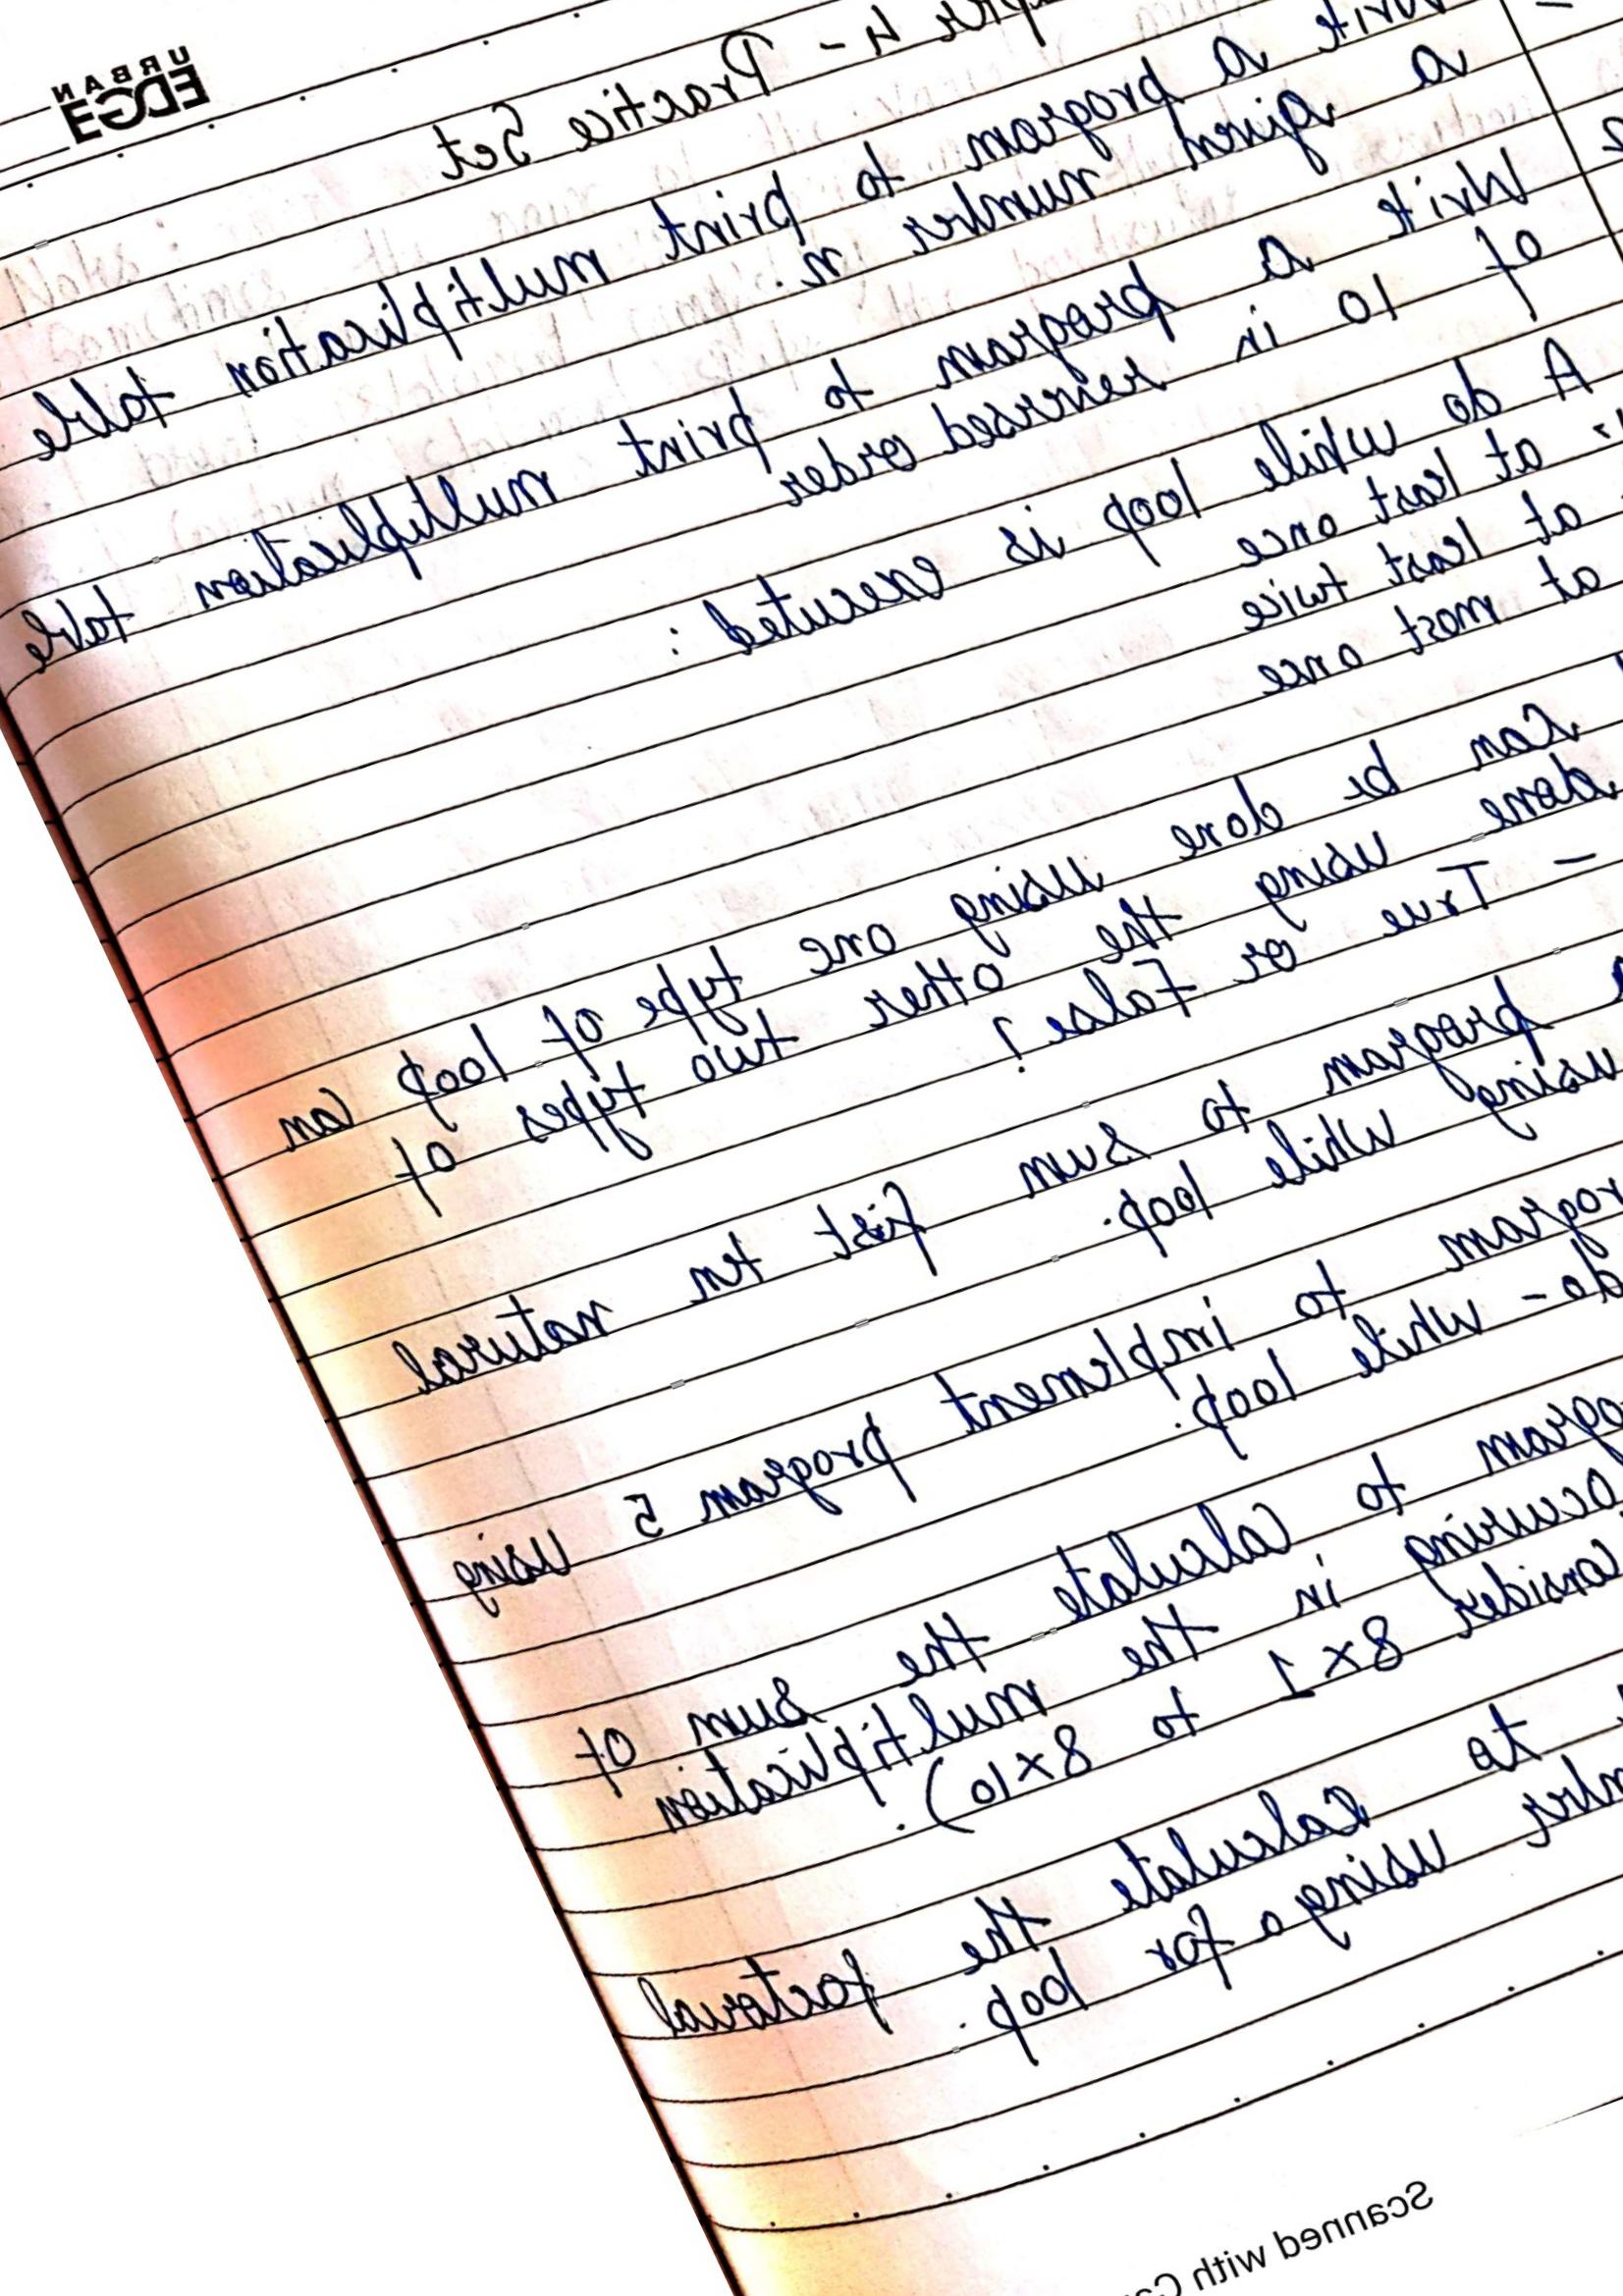 URBAN
EDGE
4 - Practice Set
Write a program to print multiplication table
a given number n.
Write a program to print multiplication table
of 10 in reversed order
A do while loop is executed :
at least once
at least twice
at most once
Can be done using one type of loop can
done using the other two types of
- True or False ?
program to sum fist ten natural
using while loop.
to implement program 5 using
do - while loop.
to calculate the sum of
occuring in the multiplication
Consider 8×1 to 8×10).
to calculate the factorial
using a for loop.
Scanned with